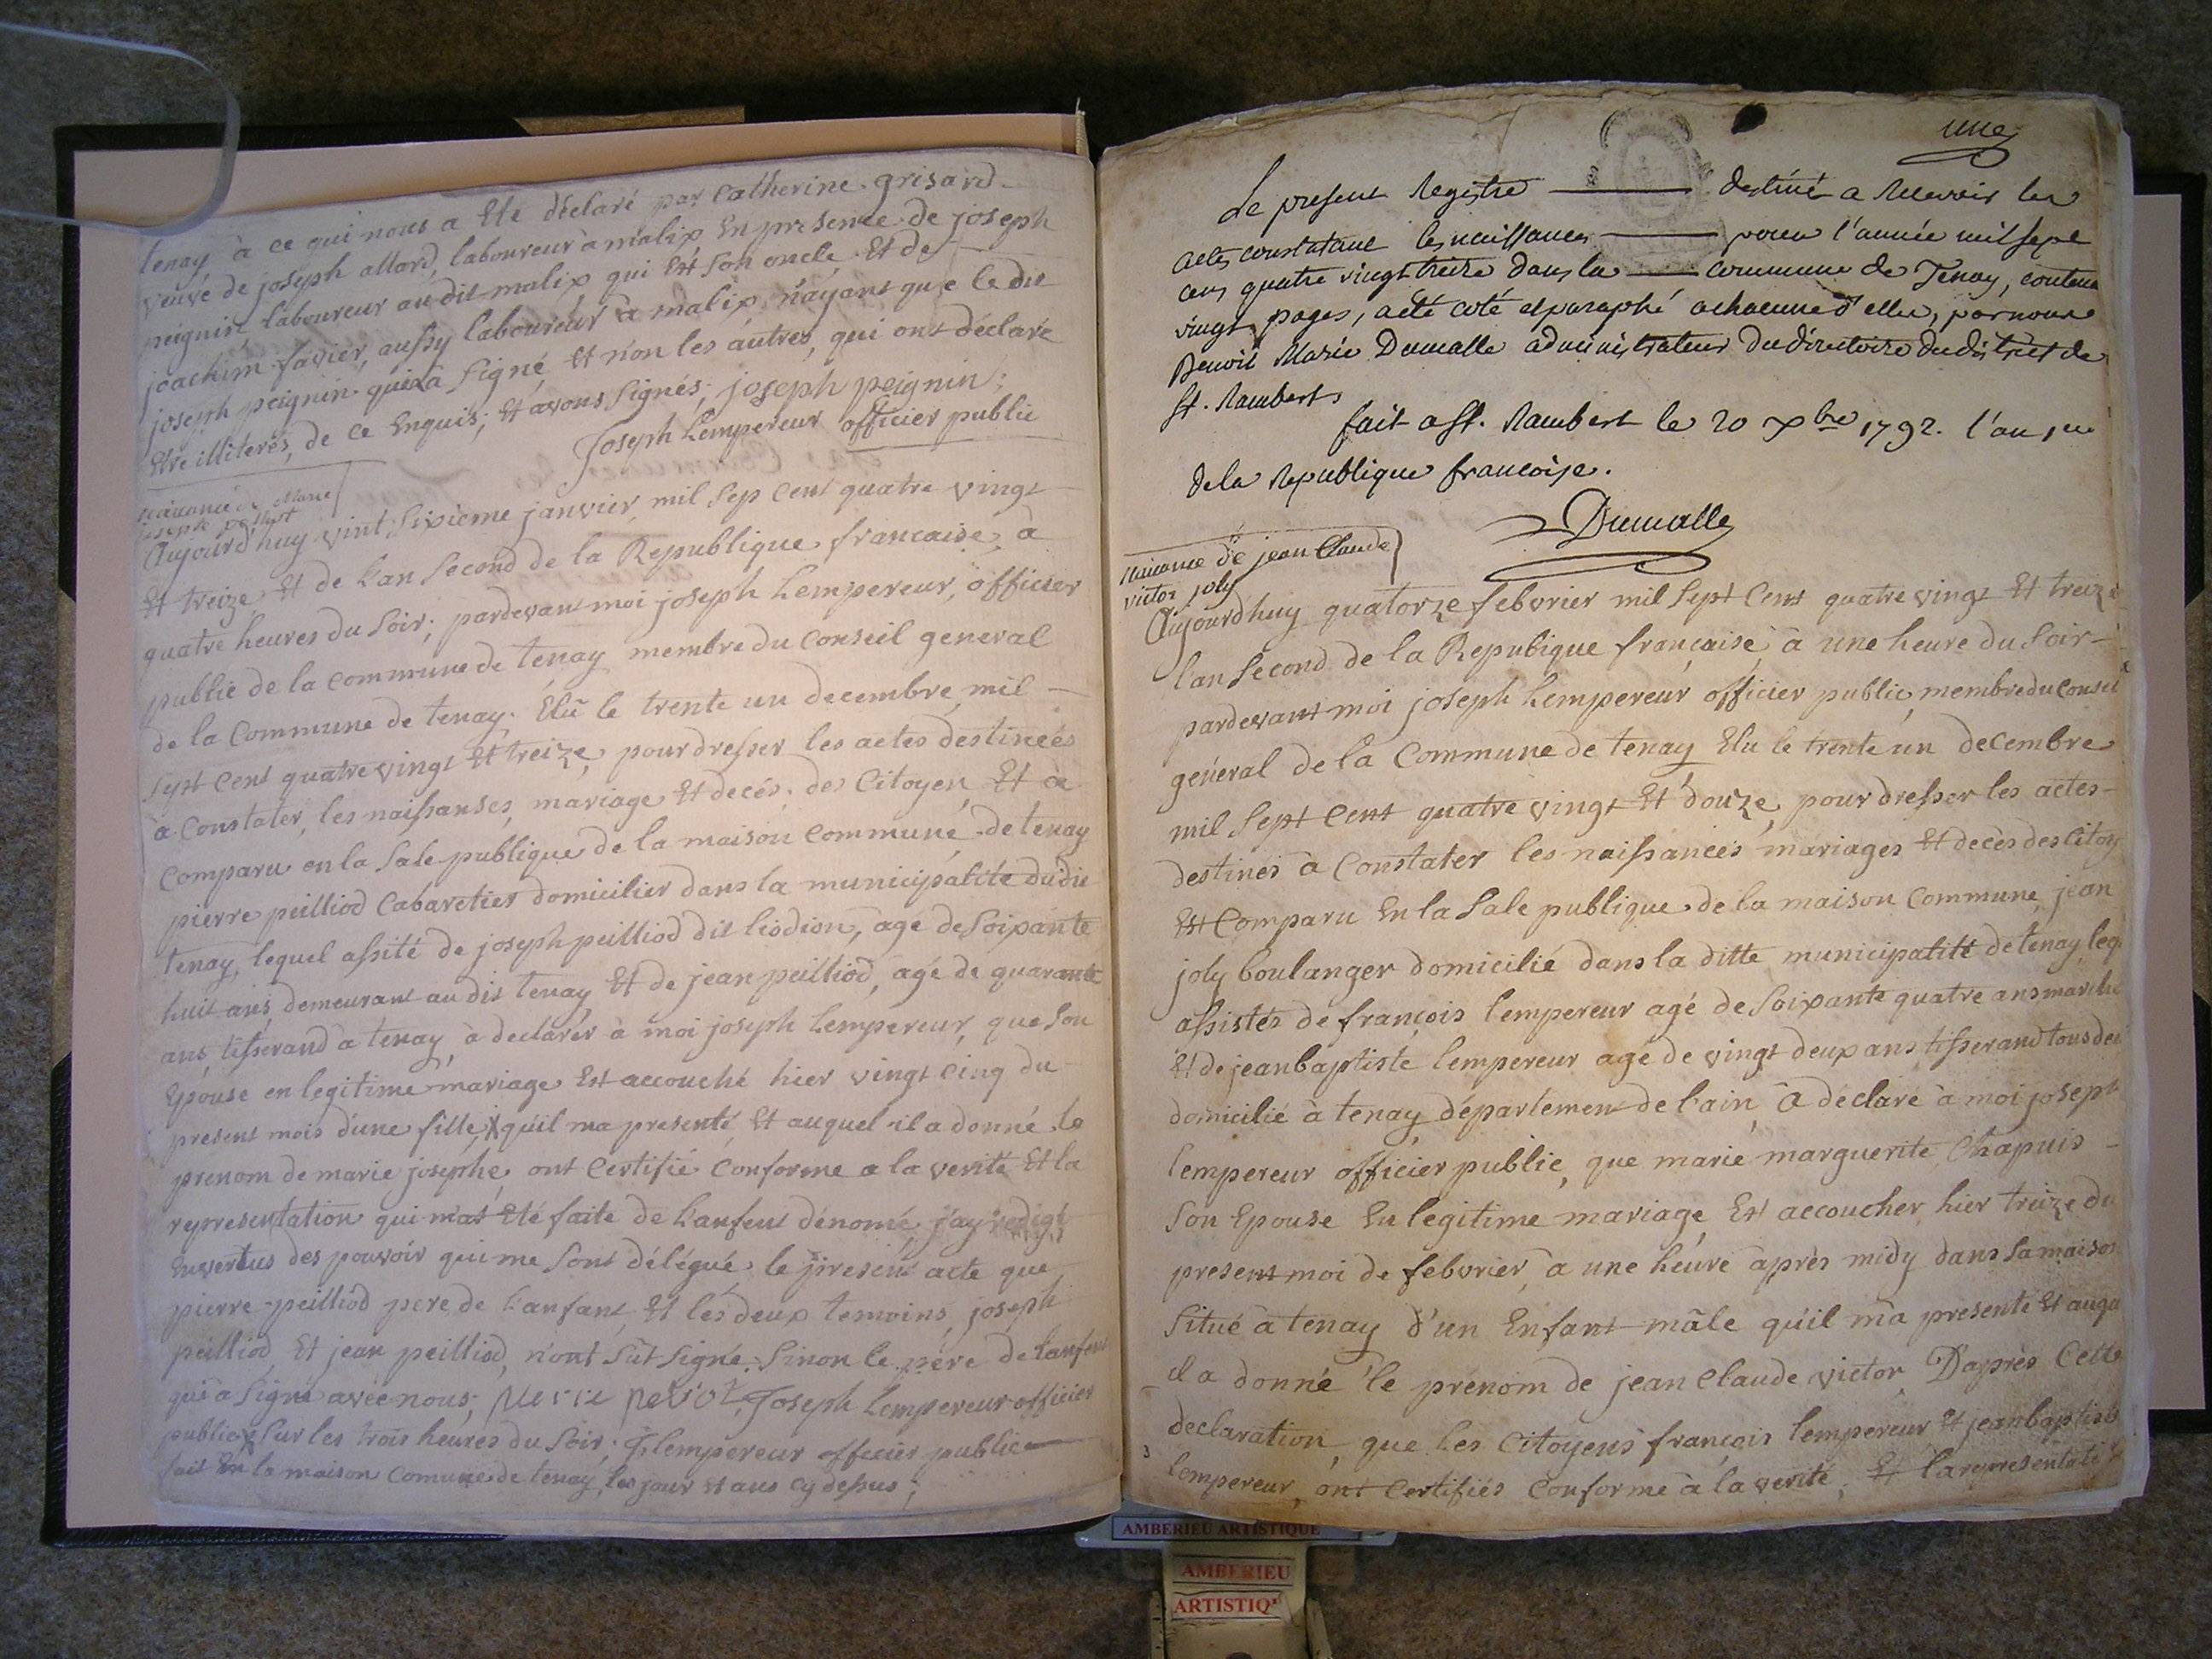 tenay à ce qui nous a Eté déclaré par Catherine grisard
veuve de joseph allard, laboureur à malix En presence de joseph
peignin, laboureur au dit malix qui Est son oncle Et de
joachim favier, aussy laboureur à malix, n'ayant que le dit
joseph peignin qui a Signé Et non les autres, qui ont déclaré
Etre illiterés, de ce Enquis; Et avons Signés; joseph peignin;
Joseph Lempereur officier public
naisance de Marie
josephe peilliot
Aujourd'huy vint Sixieme janvier, mil Sep Cent quatre vingt
Et treize, Et de L'an Second de la Republique francaise, à
quatre heures du Soir; pardevant moi joseph Lempereur, officier
public de la commune de tenay membre du Conseil general
de la Commune de tenay. Elû le trente un decembre, mil
Sept Cent quatre vingt Et treize, pour dresser les actes destineés
à Constater, les naissanses, mariage Et decés, des Citoyen, Et à
Comparu en la Sale publique de la maison Commune de tenay
pierre peilliod Cabaretier domicilier dans la municipalité du dit
tenay, lequel assité de joseph peilliod dit liodion, age de Soixante
huit ans, demeurant au dit tenay Et de jean peilliod, agé de quarante
ans, tisserand à tenay, à declarér à moi joseph Lempereur, que Son
Epouse en legitime mariage Est accouché hier vingt Cinq du
present mois d'une fille, X qu'il ma presenté, Et auquel il a donné le
prenom de marie josephe, ont Certifié Conforme a la verité Et la
representation qui m'at Eté faite de L'anfent dénomé, j'ay redigé
Envertus des pouvoir qui me Sont délégué le present acte que
pierre peilliod pere de L'anfant, Et les deux temoins, joseph
peilliod, Et jean peilliod, n'ont Sût Signé. Sinon le pére de L'anfent
qui a Signé avec nous; Joseph Lempereur officier
public X Sur les trois heures du Soir; Js lempereur officier public
fait En la maison Comune de tenay, les jour Et ans cy dessus;
une
Le present Registre destiné a Recevoir les
actes constatant les naissances pour l'année mil sept
cens quatre vingt treize dans la commune de Tenay, contena
vingt pages, a été coté et paraphé a chacune d'elles, par nous
Benoit Marie Dumalle administrateur du directoire du district de
St. Rambert
fait a St. Rambert le 20 xbre 1792. l'an 1er
de la Republique francoise.
Dumalle
naisance de jean Claude
victor joly
Aujourd'huy quatorze febvrier mil Sept Cent quatre vingt Et treize
l'an Second de la Repubique française à une heure du Soir
pardevant moi joseph Lempereur officier public, membre du Conseil
general de la Commune de tenay Elu le trente un decembre
mil Sept Cent quatre vingt Et douze, pour dresser les actes
destinés à Constater les naissances mariages Et decès des Citoy
Est Comparu En la Sale publique de la maison Commune, jean
joly boulanger domicilié dans la ditte municipalité de tenay, leq
assistés de françois lempereur agé de Soixante quatre ans marcha
Et de jean baptiste lempereur agé de vingt deux ans tisserand tous deu
domicilié à tenay département de l'ain, à déclaré à moi joseph
lempereur officier public, que marie marguerite Chapuis
Son Epouse En legitime mariage, Est accoucher, hier treize du
present moi de febvrier, à une heure après midy dans Sa maison
Situé à tenay d'un Enfant mâle qu'il m'a presenté Et auqu
il a donné le prénom de jean Claude victor, D'après Cette
declaration, que Les Citoyens françois lempereur Et jean baptiste
lempereur, ont Certifiés Conforme à la verité, Et la representati
3
AMBERIEU ARTISTIQUE
AMBERIEU
ARTISTIQ